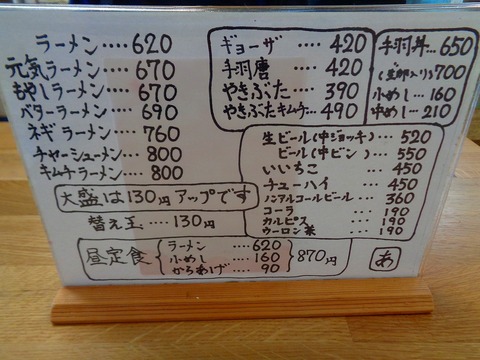 ラーメン....620
元気ラーメン....670
もやしラーメン....670
バターラーメン....690
ネギラーメン....760
チャーシューメン....800
キムチラーメン....800
大盛は130円アップです
替え玉....130円
昼定食
ラーメン....620
小めし....160
からあげ....90
870円
ギョーザ....420
手羽唐....420
やきぶた....390
やきぶたキムチ...490
手羽丼..650
(生卵入り)700
小めし...160
中めし...210
生ビール(中ジョッキ)....520
ビール(中ビン)....550
いいちこ....450
チューハイ....450
ノンアルコールビール....360
コーラ....190
カルピス....190
ウーロン茶....190
あ